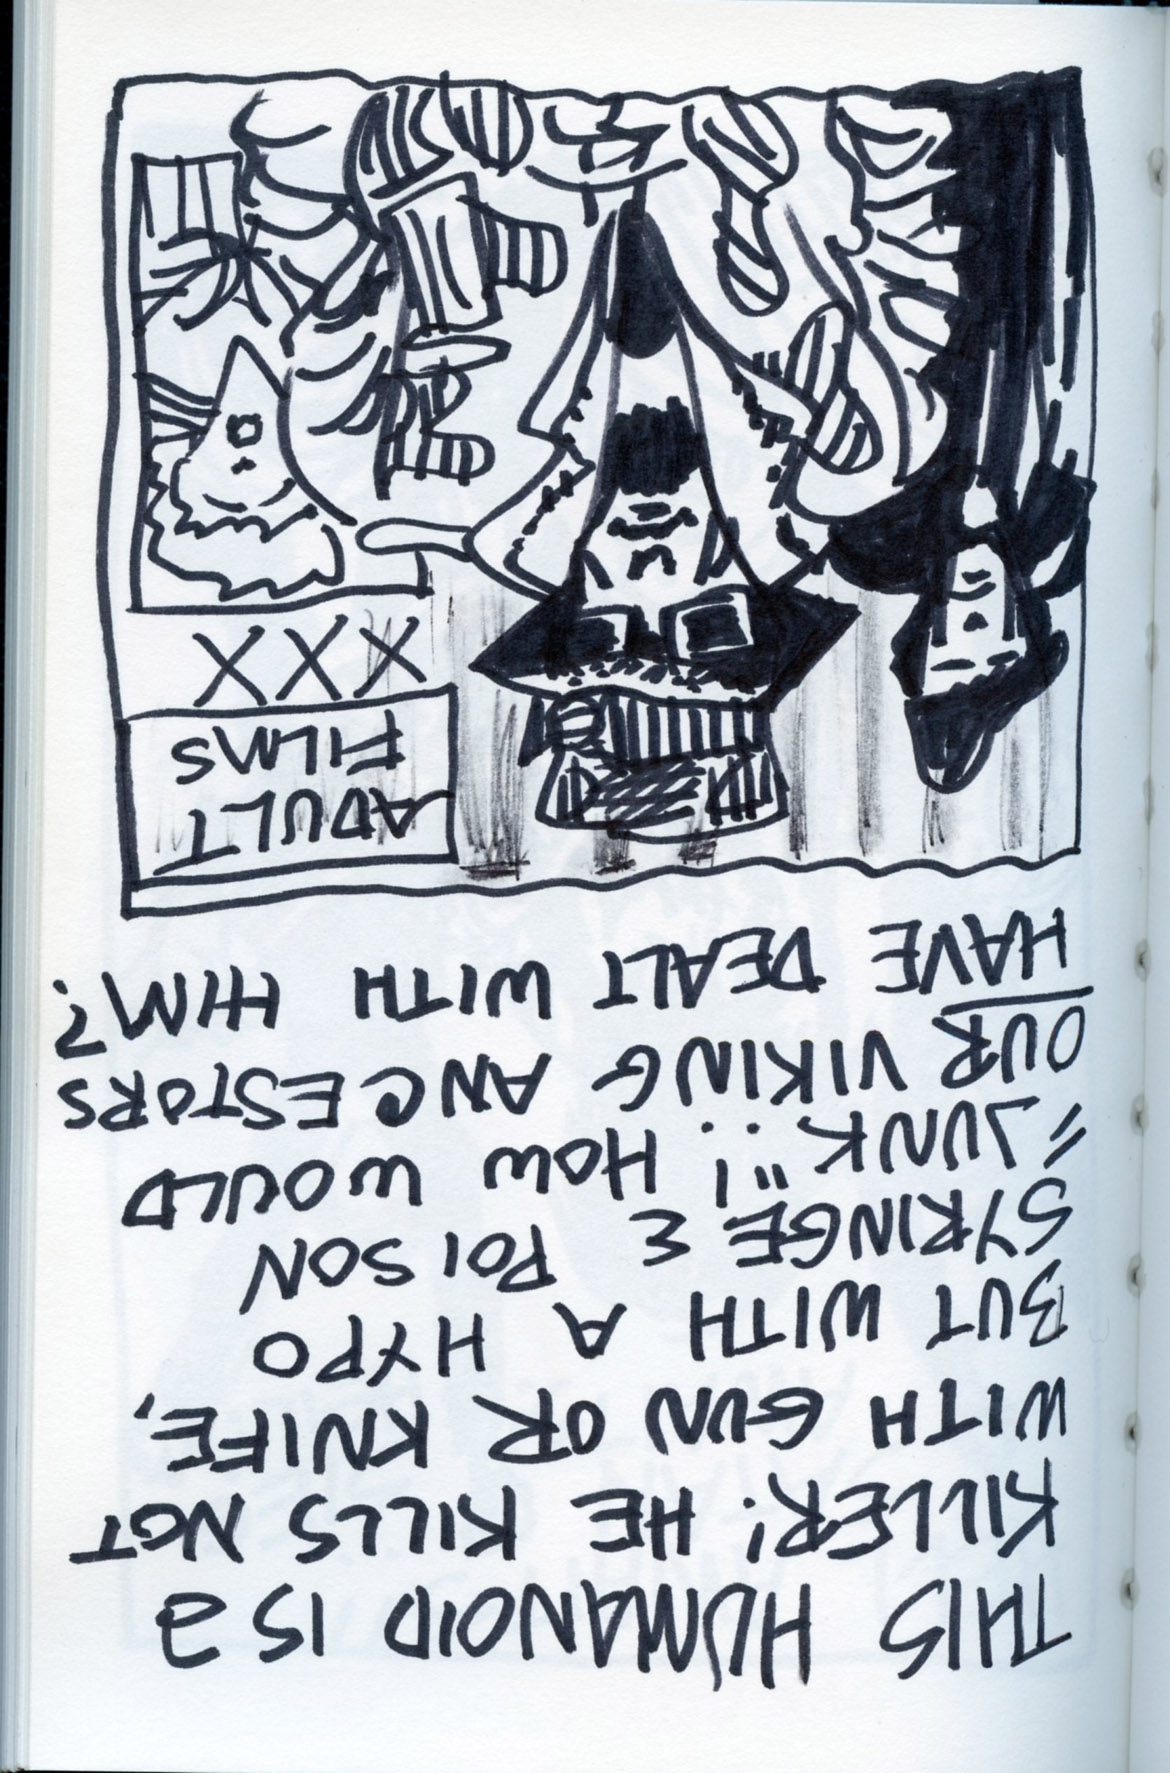 THIS HUMANOID IS a
KILLER! HE KILLS NOT
WITH GUN OR KNIFE,
BUT WITH A HYPO
SYRINGE & POISON
"JUNK"!! HOW WOULD
OUR VIKING ANCESTORS
HAVE DEALT WITH HIM?
ADULT
FILMS
XXX